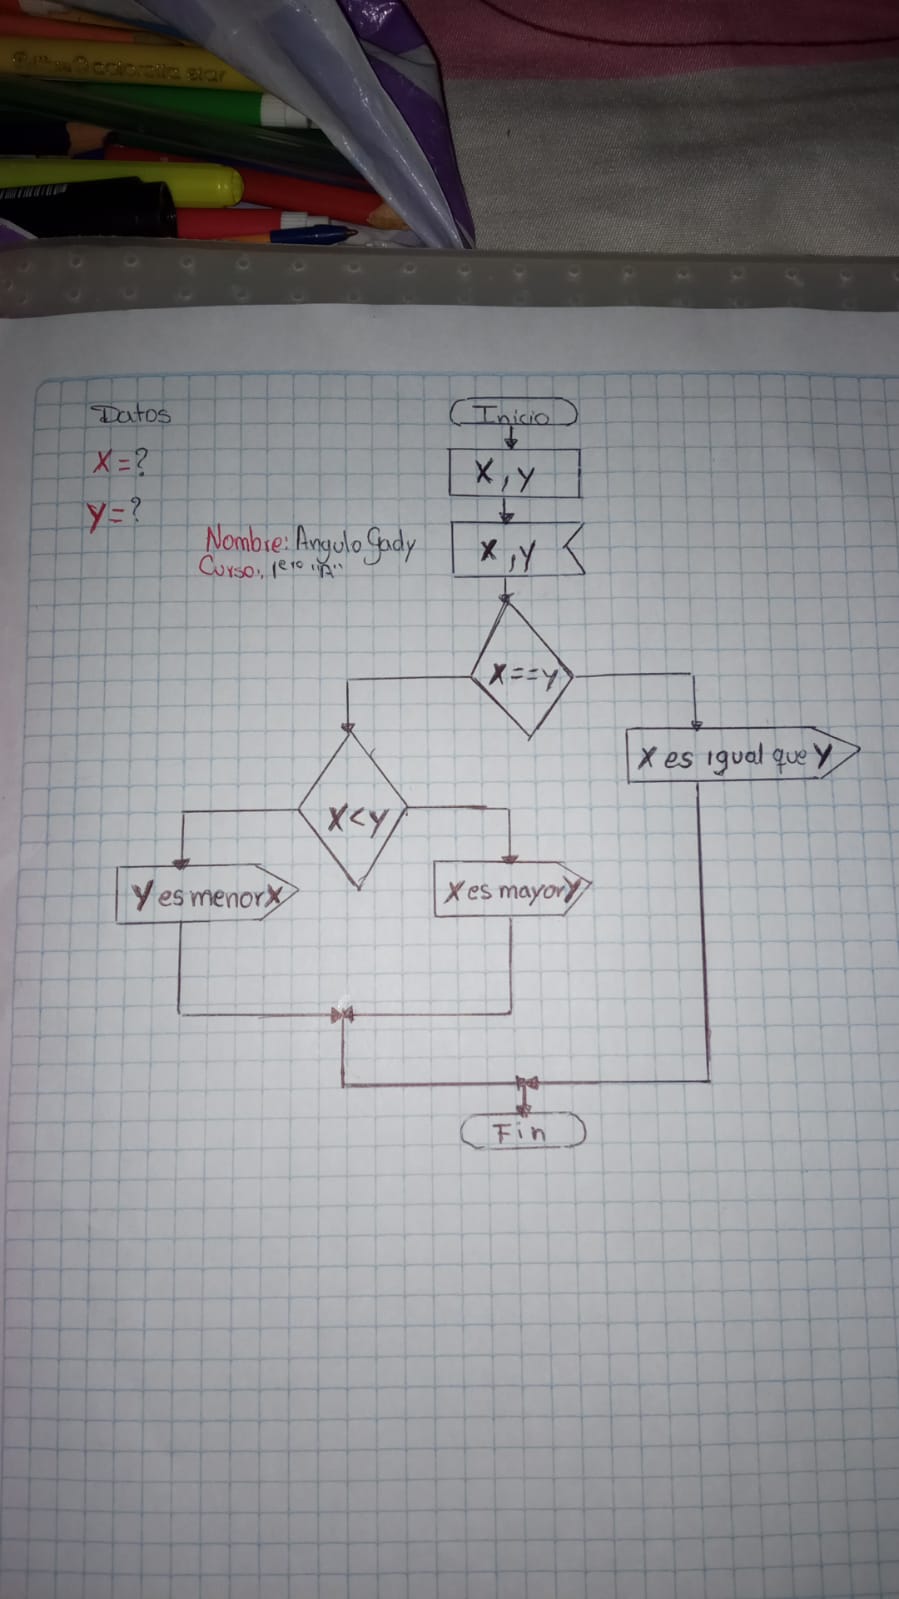 coloretta star
Datos
X=?
y=?
Nombre: Angulo Gady
Curso: 1ero "A"
Inicio
X,y
X,y
X==y
X es igual que Y
X<y
Y es menor X
X es mayor Y
Fin